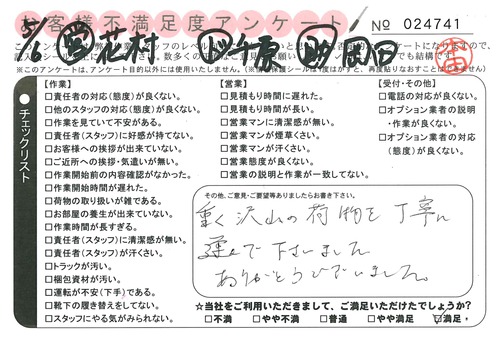 お客様不満足度アンケート
No 024741
5/6 営 花村 作 千東 助 岡田
※このアンケートは、アンケート目的以外には使用いたしません。
チェックリスト
【作業】
□責任者の対応(態度)が良くない。
□他のスタッフの対応(態度)が良くない。
□作業を見ていて不安がある。
□責任者(スタッフ)に好感が持てない。
□お客様への挨拶が出来ていない。
□ご近所への挨拶・気遣いが無い。
□作業開始前の内容確認がなかった。
□作業開始時間が遅れた。
□荷物の取り扱いが雑である。
□お部屋の養生が出来ていない。
□作業時間が長すぎる。
□責任者(スタッフ)に清潔感が無い。
□責任者(スタッフ)が汗くさい。
□トラックが汚い。
□梱包資材が汚い。
□運転が不安(下手)である。
□靴下の履き替えをしてない。
□スタッフにやる気がみられない。
【営業】
□見積もり時間に遅れた。
□見積もり時間が長い。
□営業マンに清潔感が無い。
□営業マンが煙草くさい。
□営業マンが汗くさい。
□営業態度が良くない。
□営業の説明と作業が一致してない。
【受付・その他】
□電話の対応が良くない。
□オプション業者の説明
・作業が良くない。
□オプション業者の対応
(態度)が良くない。
その他、ご意見・ご要望等ありましたらお書き下さい。
重く沢山の荷物を丁寧に
運んで下さいました
ありがとうございました。
☆当社をご利用いただきまして、ご満足いただけたでしょうか?
□不満 □やや不満 □普通 □やや満足 ☑満足